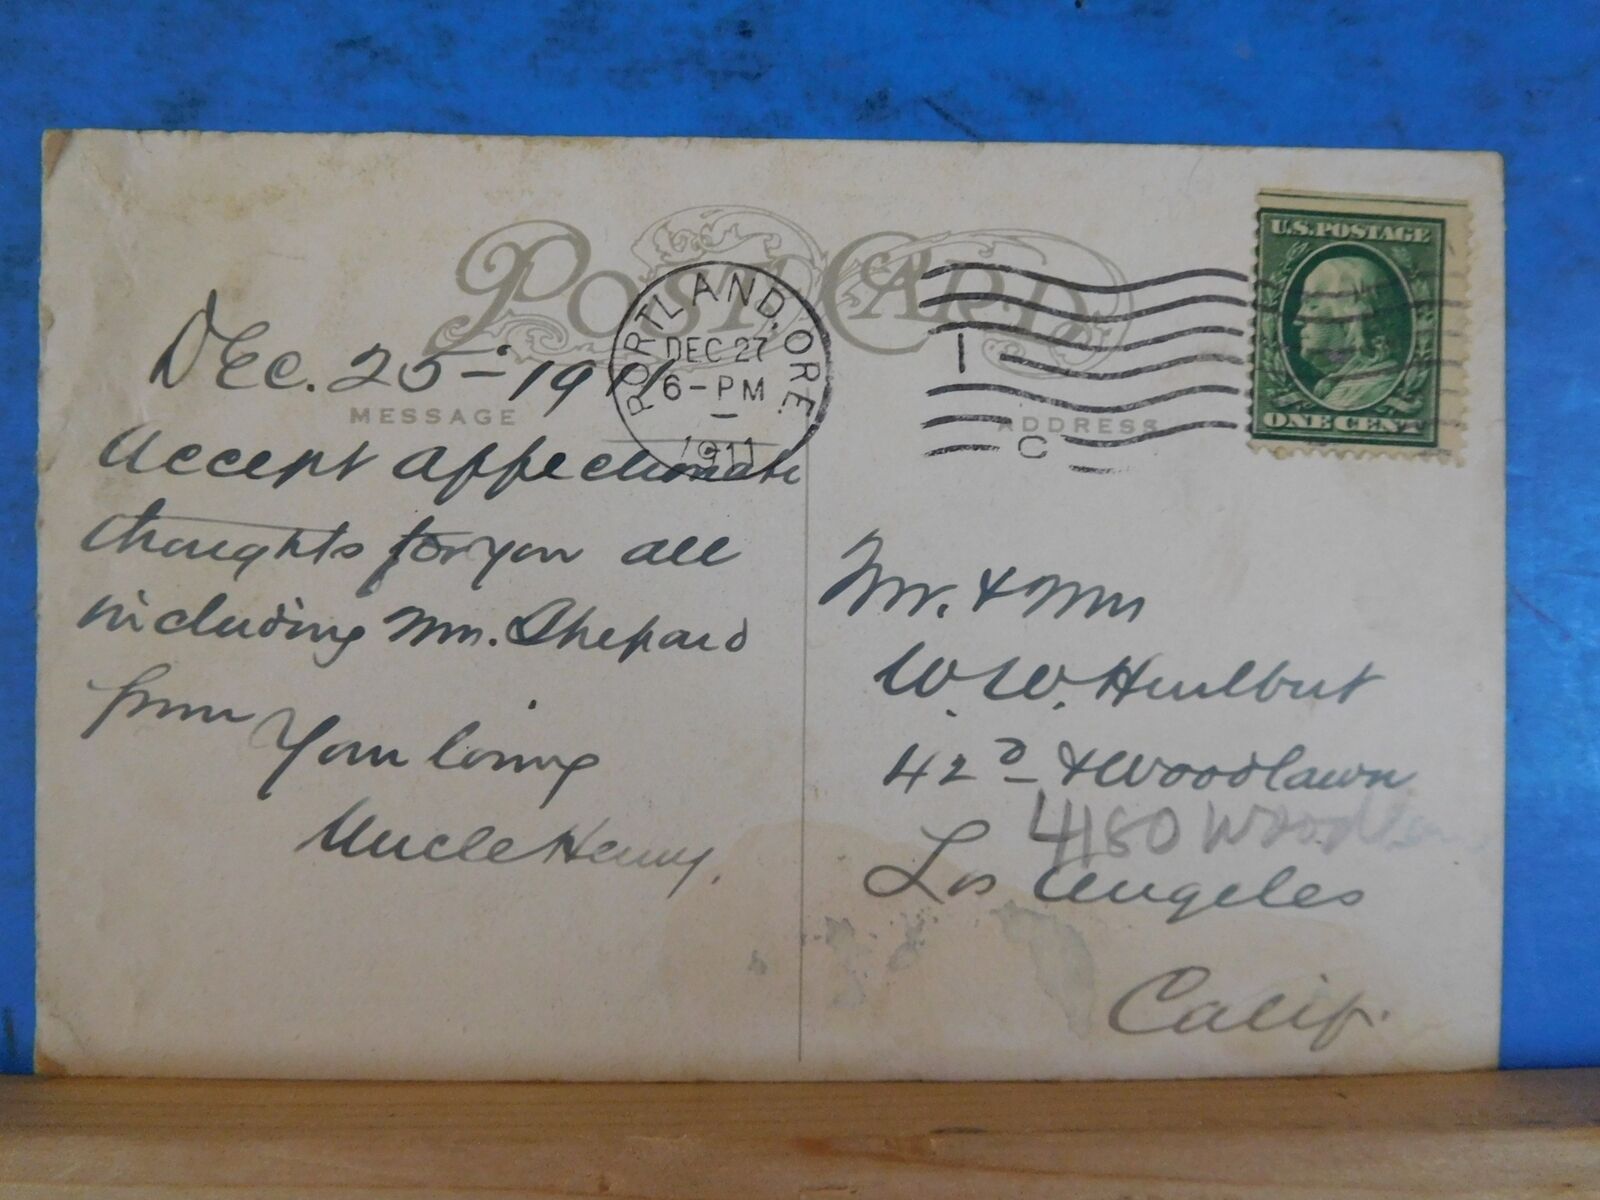 POST CARD
PORTLAND, ORE.
DEC 27
6-PM
1911
1
C
U.S. POSTAGE
ONE CENT
MESSAGE
ADDRESS
Dec. 25- 1911
Accept affectionate
thoughts for you all
including Mrs. Shepard
from
Your loving
Uncle Henry.
Mr. & Mrs
W. W. Hurlbut
42d & Woodlawn
4180 Woodlawn
Los Angeles
Calif.